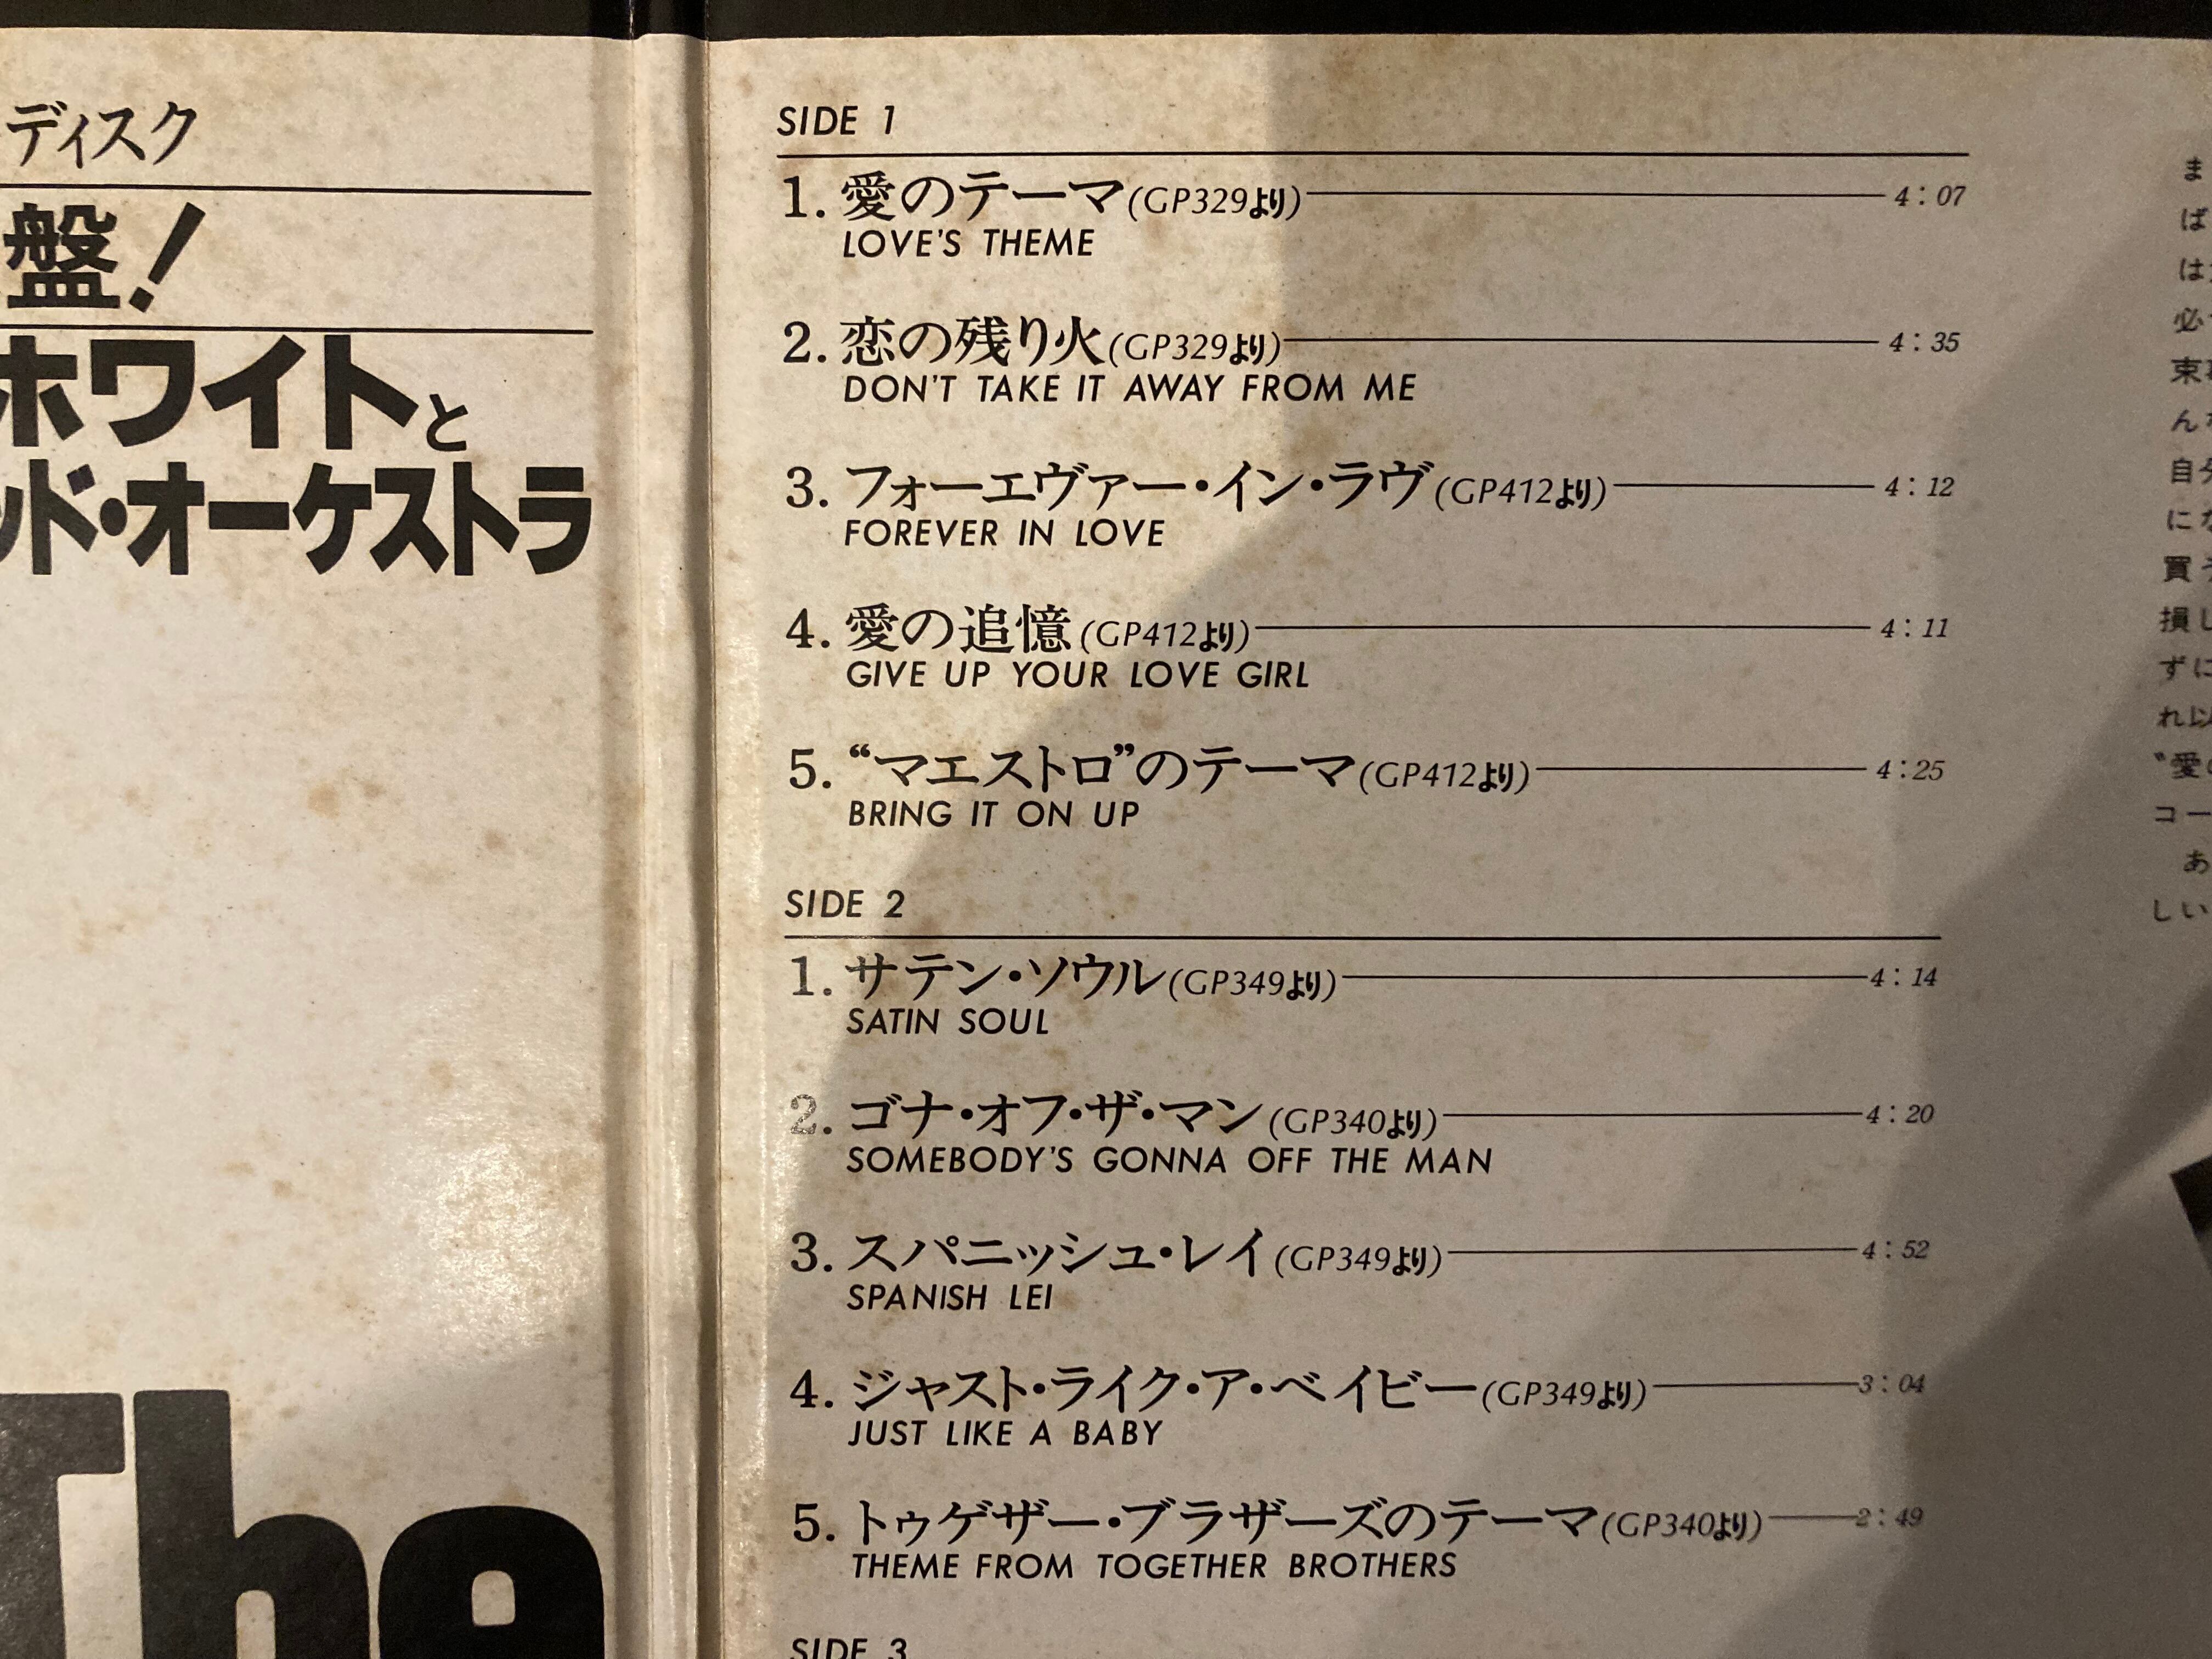 ディスク
盤!
ホワイトと
ッド・オーケストラ
The
SIDE 1
1. 愛のテーマ(GP329より) 4:07
LOVE'S THEME
2. 恋の残り火(GP329より) 4:35
DON'T TAKE IT AWAY FROM ME
3. フォーエヴァー・イン・ラヴ(GP412より) 4:12
FOREVER IN LOVE
4. 愛の追憶(GP412より) 4:11
GIVE UP YOUR LOVE GIRL
5. “マエストロ”のテーマ(GP412より) 4:25
BRING IT ON UP
SIDE 2
1. サテン・ソウル(GP349より) 4:14
SATIN SOUL
2. ゴナ・オフ・ザ・マン(GP340より) 4:20
SOMEBODY'S GONNA OFF THE MAN
3. スパニッシュ・レイ(GP349より) 4:52
SPANISH LEI
4. ジャスト・ライク・ア・ベイビー(GP349より) 3:04
JUST LIKE A BABY
5. トゥゲザー・ブラザーズのテーマ(GP340より) 2:49
THEME FROM TOGETHER BROTHERS
SIDE 3
ま
ば
は
必
束
ん
自分
にな
買
損し
ずに
れ以
“愛の
コー
あ
しい